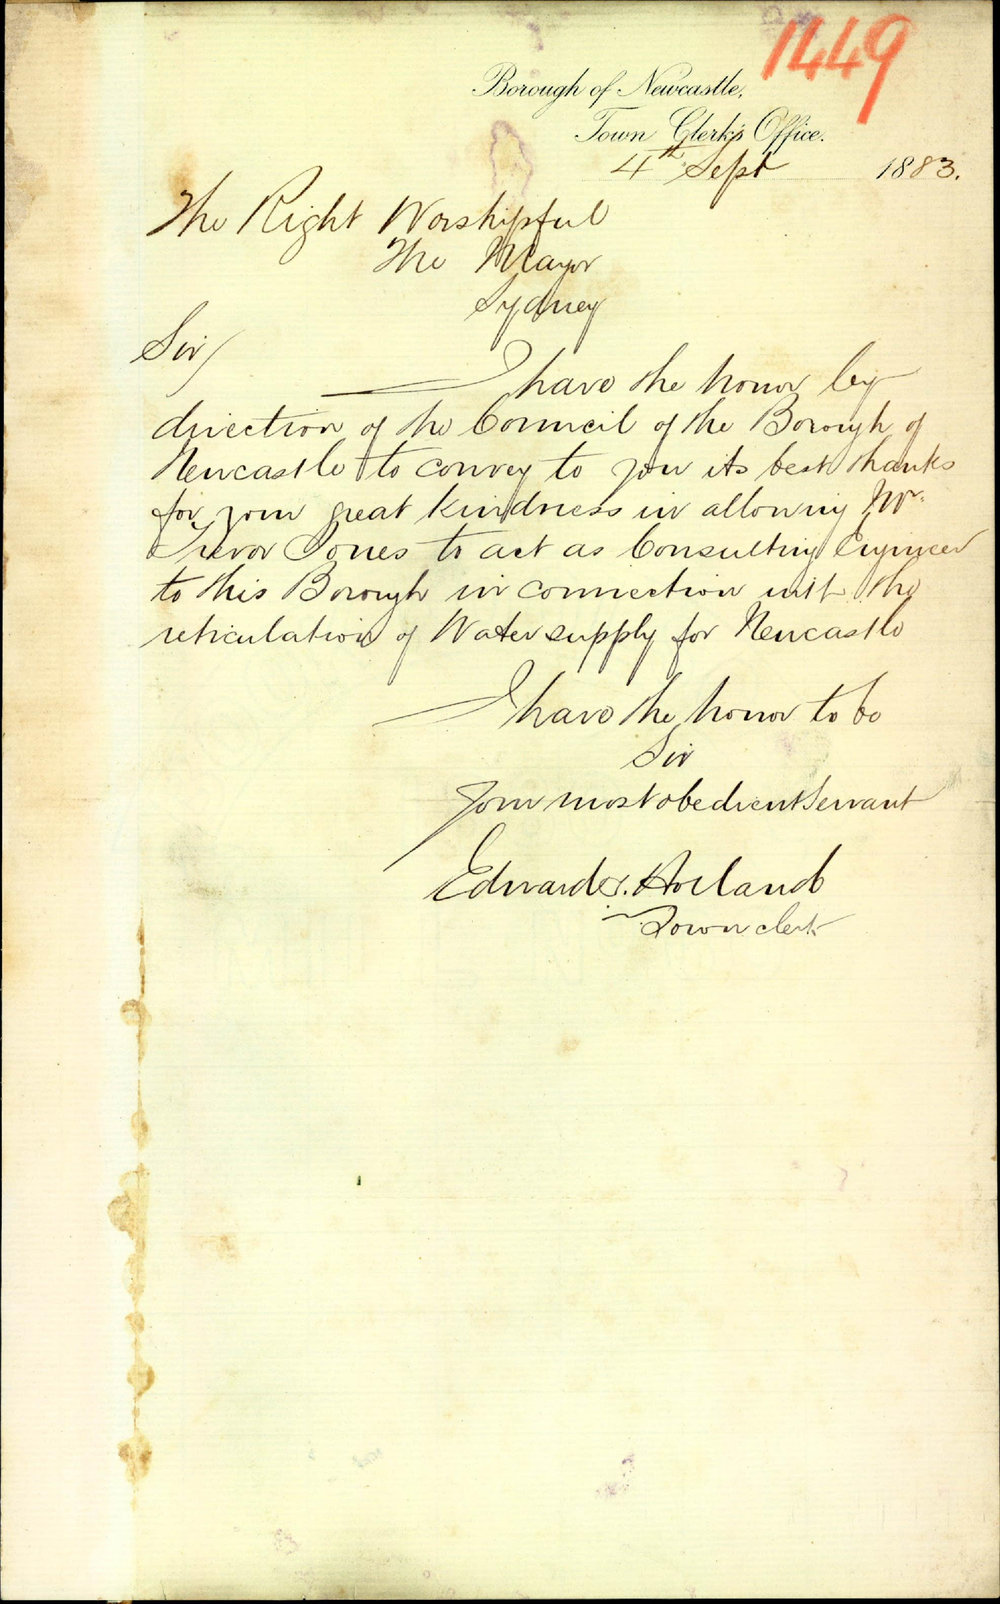 1449
Borough of Newcastle,
Town Clerk's Office.
4th Sept 1883.
The Right Worshipful
The Mayor
Sydney
Sir/
I have the honor by
direction of the Council of the Borough of
Newcastle to convey to you its best thanks
for your great kindness in allowing Mr.
Trevor Jones to act as Consulting Engineer
to this Borough in connection with the
reticulation of Water supply for Newcastle
I have the honor to be
Sir
Your most obedient Servant
Edward S. Holland
Town clerk